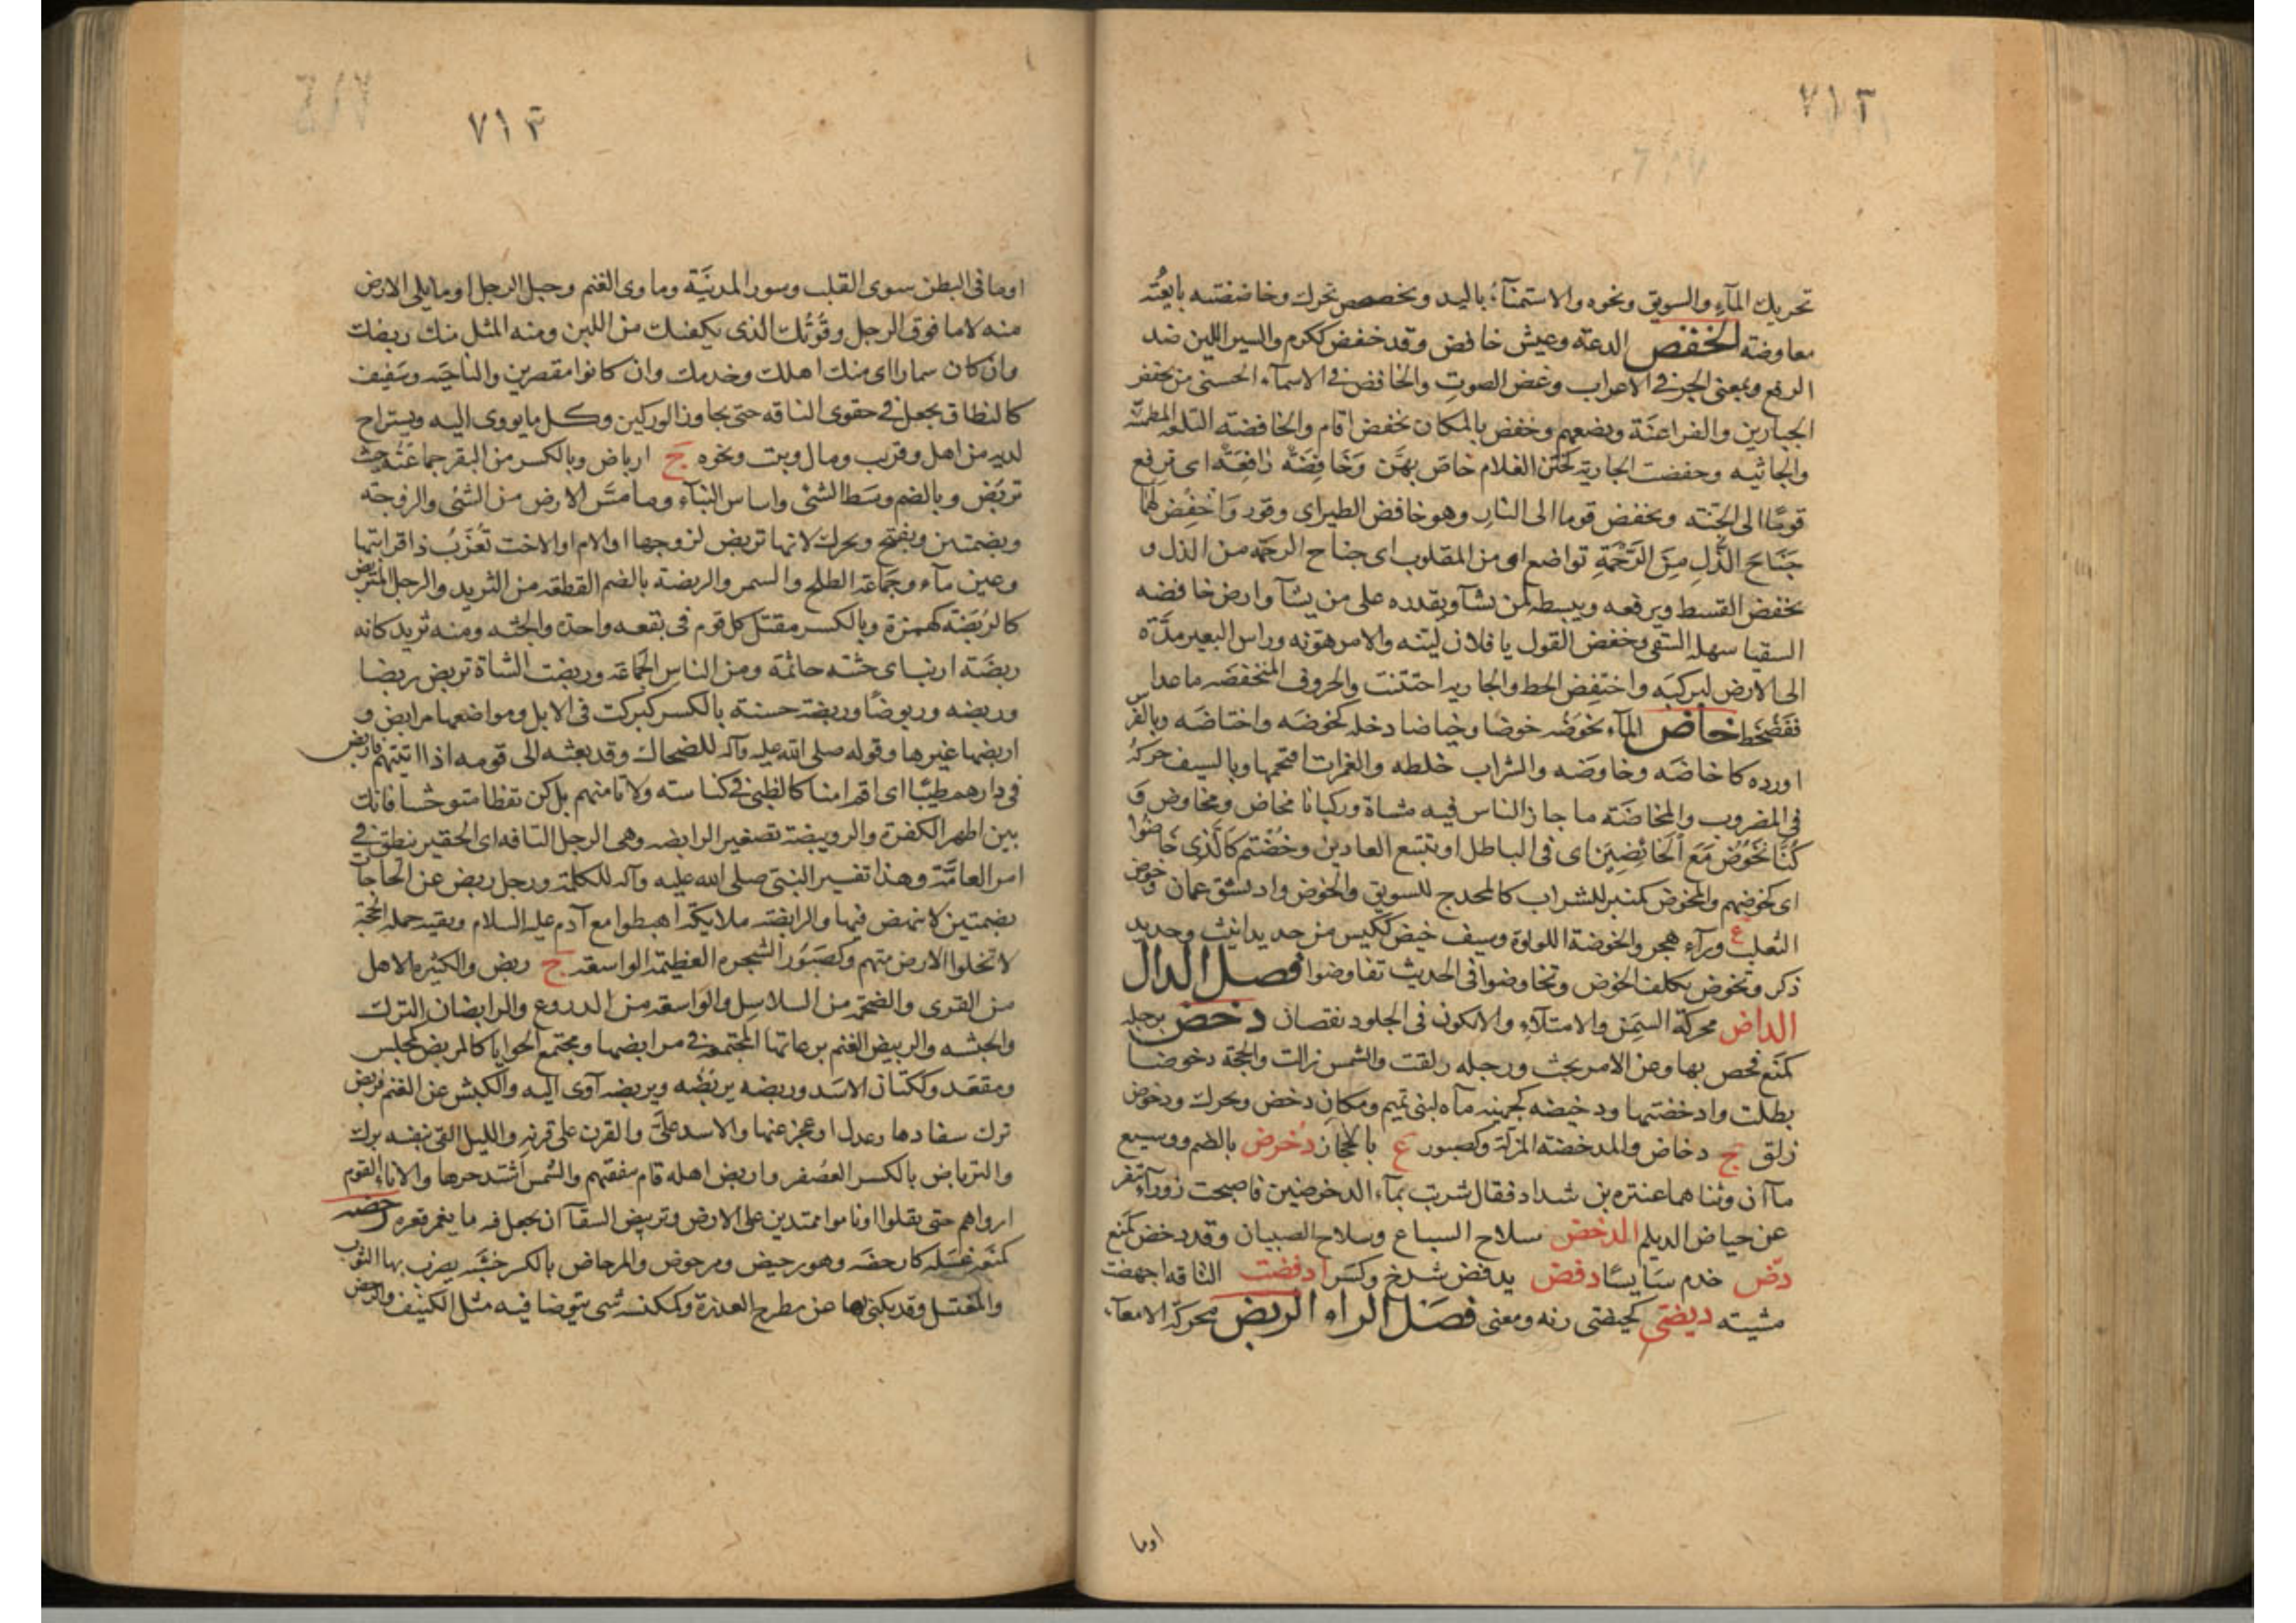 ٧١٢
تحريك المآء والسويق ونحوه والاستمنآء باليد وتخضخض تحرك وخاضضته بايعته
معاوضة الخفض الدعة وعيش خافض وقد خفض ككرم والسير اللين ضد
الرفع وبمعنى الجر في الاعراب وغض الصوت والخافض في الاسمآء الحسنى من يخفض
الجبارين والفراعنة ويضعهم وخفض بالمكان يخفض اقام والخافضة التلعة المطمئنة
والخاتنة وخفضت الجارية كختن الغلام خاص بهن وخافضة رافعة اى ترفع
قوما الى الجنة وتخفض قوما الى النار وهو خافض الطير اى وقور واخفض لهما
جناح الذل من الرحمة تواضع او من المقلوب اى جناح الرحمة من الذل و
يخفض القسط ويرفعه ويبسطه لمن يشآ ويقدره على من يشآ وارض خافضه
السقيا سهلة السقى وخفض القول يا فلان لينه والامر هونه وراس البعير مده
الى الارض ليركبه واختفض انحط والجارية اختتنت والحروف المنخفضه ماعدا
قغضخصط خاض المآء يخوضه خوضا وخياضا دخله كخوضه واختاضه وبالفرس
اورده كاخاضه وخاوضه والشراب خلطه والغمرات اقتحمها وبالسيف حركه
فى المضروب والمخاضة ما جاز الناس فيه مشاة وركبانا مخاض ومخاوض و
كنا نخوض مع الخائضين اى فى الباطل او نتبع الغاوين وخضتم كالذى خاضوا
اى كخوضهم والمخوض كمنبر للشراب كالمجدح للسويق والخوض واد بشق عمان وخوض
الثعلب ع ورآء هجر والخوضة اللولوة وسيف خيض ككيس من حديد انيث وحديد
ذكر وتخوض تكلف الخوض وتخاوضوا فى الحديث تفاوضوا فصل الدال
الداض محركة السمن والامتلآء والا يكون فى الجلود نقصان دحض برجله
كمنع فحص بها وعن الامر بحث ورجله زلقت والشمس زالت والحجة دحوضا
بطلت وادحضتها ودحيضه كجهينه مآء لبنى تميم ومكان دحض ويحرك ودحوض
زلق ج دحاض والمدحضة المزلة وكصبور ع بالحجاز دحرض بالضم ووسيع
مآان وثناهما عنترة بن شداد فقال شربت بمآء الدحرضين فاصبحت زورآء تنفر
عن حياض الديلم الدخض سلاح السباع وسلاح الصبيان وقد دخض كمنع
دض خدم سايسا دفض يدفض شدخ وكسر ادفضت الناقه اجهضت
مشيته ديضى كحيضى زنه ومعنى فصل الراء الربض محركة الامعآء
اوما
٧١٣
اوما فى البطن سوى القلب وسور المدينة وماوى الغنم وحبل الرحل او ما يلى الارض
منه لا ما فوق الرحل وقوتك الذى يكفيك من اللبن ومنه المثل منك ربضك
وان كان سمارا اى منك اهلك وخدمك وان كانوا مقصرين والناحيه وسفيف
كالنطاق يجعل في حقوى الناقه حتى يجاوز الوركين وكل ما يووى اليه ويستراح
لديه من اهل وقريب ومال وبيت ونحوه ج ارباض وبالكسر من البقر جماعته حيث
تربض وبالضم وسط الشئ واساس البنآء وما مس الارض من الشئ والزوجة
وبضمتين ويفتح ويحرك لانها تربض زوجها او الام او الاخت تعزب ذا قرابتها
وعين مآء وجماعة الطلح والسمر والربضة بالضم القطعة من الثريد والرجل المتربض
كالربضة كهمزة وبالكسر مقتل كل قوم فى بقعه واحدة والجثه ومنه ثريد كانه
ربضة ارنب اى جثته جاثمة ومن الناس الجماعة وربضت الشاة تربض ربضا
وربضه وربوضا وربضة حسنة بالكسر كبركت فى الابل ومواضعها مرابض و
اربضها غيرها وقوله صلى الله عليه وآله للضحاك وقد بعثه الى قومه اذا اتيتهم فاربض
فى دارهم ظبيا اى اقم امنا كالظبى في كناسته ولا تامنهم بل كن يقظا متوحشا فانك
بين اظهر الكفرة والرويبضة تصغير الرابضه وهى الرجل التافه اى الحقير ينطق في
امر العامة وهذا تفسير النبى صلى الله عليه وآله للكلمة ورجل ربض عن الحاجات
بضمتين لا ينهض فيها والرابضه ملايكة اهبطوا مع آدم عليه السلام وبقيه حملة الحجة
لا تخلوا الارض منهم وكصبور الشجره العظيمة الواسعة ج ربض والكثيرة الاهل
من القرى والضخمة من السلاسل والواسعة من الدروع والرابضان الترك
والحبشه والربيض الغنم برعاتها المجتمعة في مرابضها ومجتمع الحوايا كالمربض كمجلس
ومقعد وككتان الاسد وربضه يربضه ويربضه آوى اليه والكبش عن الغنم يربض
ترك سفادها وعدل او عجز عنها والاسد على والقرن على قرنه والليل القى بنفسه برك
والترباض بالكسر العصفر واربض اهله قام بنفقتهم والشمس اشتد حرها والاناء القوم
ارواهم حتى ثقلوا او ناموا ممتدين على الارض وتربيض السقآ ان يجعل فيه ما يغمر قعره رحضه
كمنعه غسله كارحضه وهو رحيض ومرحوض والمرحاض بالكسر خشبه يضرب بها الثوب
والمغتسل وقد يكنى بها عن مطرح العذرة وكمكنسه شى يتوضا فيه مثل الكنيف والرحض